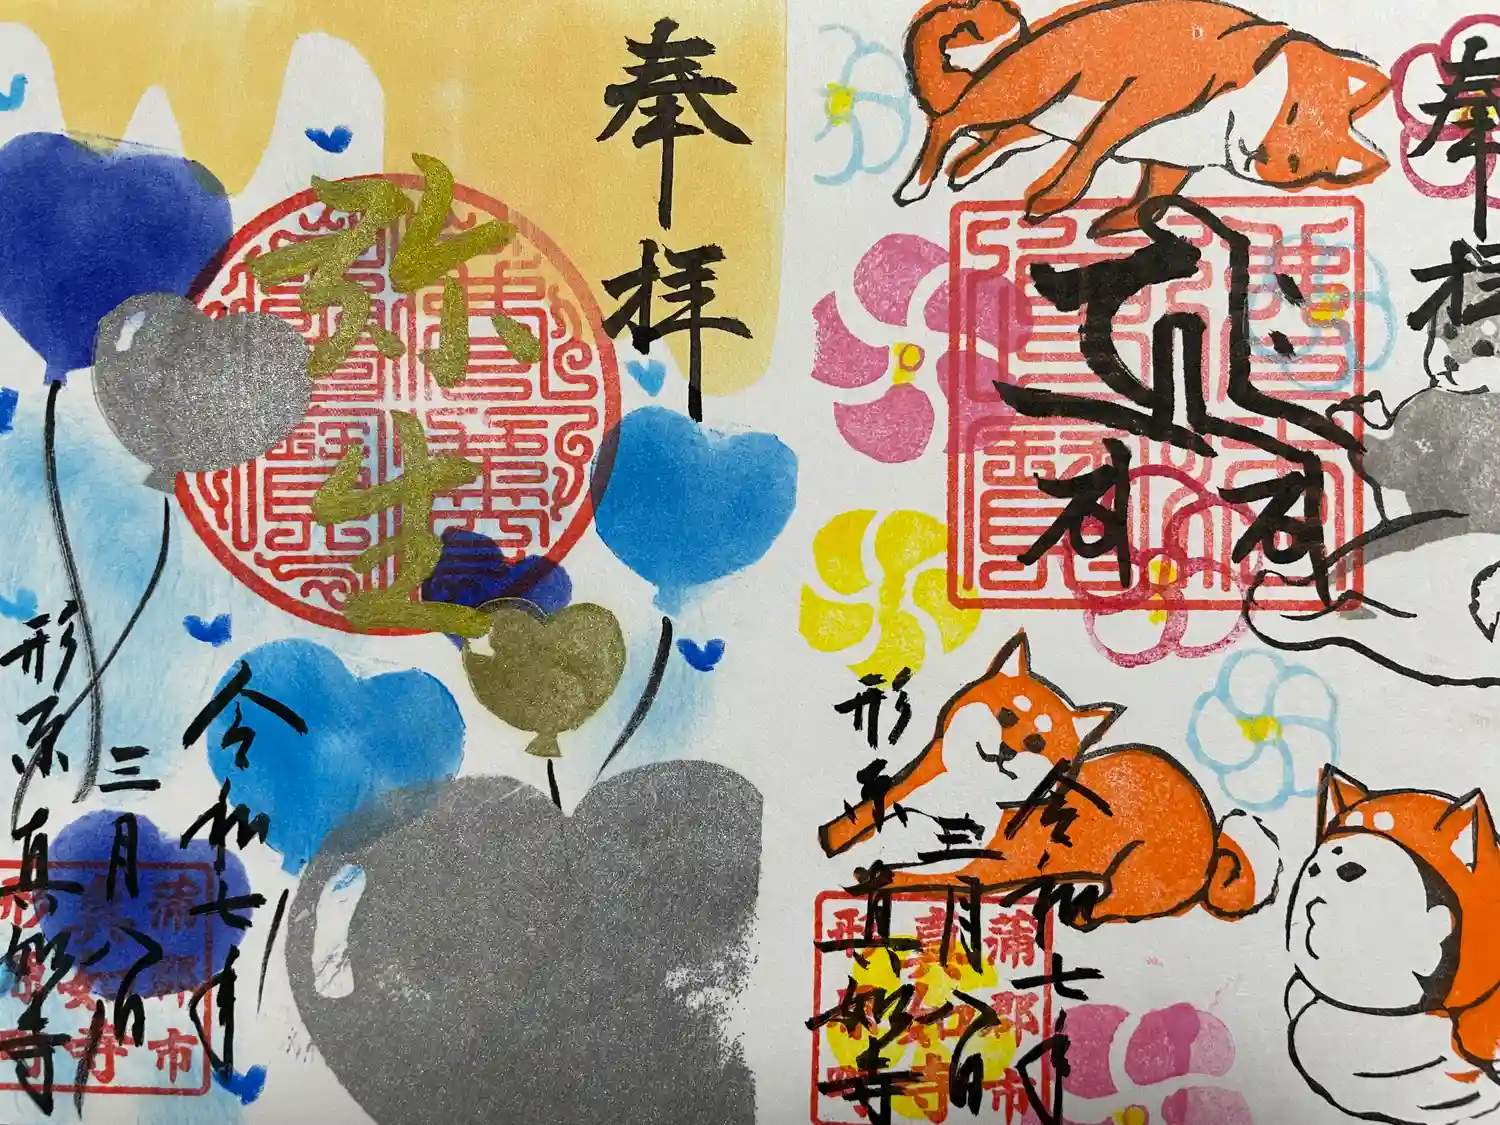 奉拝
弥生
令和七年
三月八日
形原 真如寺
蒲郡市
真如寺
形原町
奉拝
令和七年
三月八日
形原 真如寺
蒲郡市
真如寺
形原町